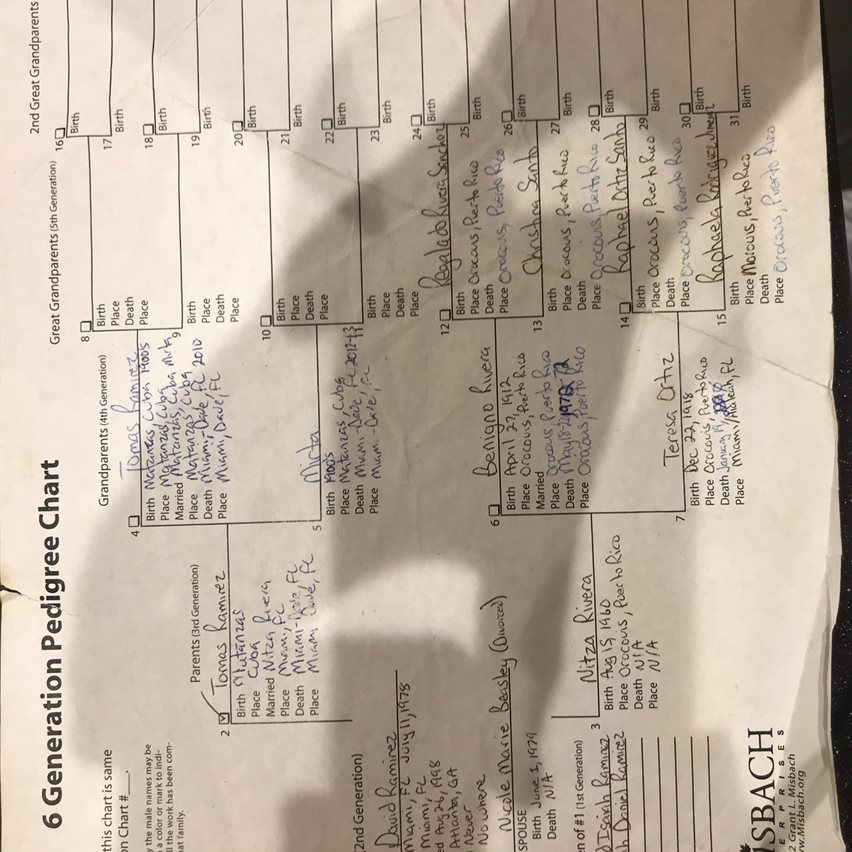 6 Generation Pedigree Chart
this chart is same
on Chart #___.
y the male names may be
a color or mark to indi-
ll the work has been com-
hat family.
2nd Generation)
David Ramirez
Miami, FL July 11, 1978
Miami, FL
Atlanta, GA
Never
No where
Nicole Marie Beasley (Divorced)
SPOUSE
Birth June 1, 1979
Death N/A
n of #1 (1st Generation)
Isaiah Ramirez
Daniel Ramirez
Parents (3rd Generation)
2
Tomas Ramirez
Birth Matanzas
Place Cuba
Married Nitza Rivera
Place Miami, FL
Death Miami-Dade, FL
Place Miami Dade, FL
3
Nitza Rivera
Birth Aug 15, 1960
Place Orocovis, Puerto Rico
Death N/A
Place N/A
Grandparents (4th Generation)
4
Tomas Ramirez
Birth Matanzas, Cuba 1900's
Place Matanzas, Cuba
Married Matanzas, Cuba Mirta
Place Matanzas, Cuba
Death Miami, Dade, FL 2010
Place Miami, Dade, FL
5
Mirta
Birth 1900's
Place Matanzas, Cuba
Death Miami-Dade, FL 2012-13
Place Miami-Dade, FL
6
Benigno Rivera
Birth April 27, 1912
Place Orocovis, Puerto Rico
Married
Place Orocovis, Puerto Rico
Death May 18
Place Orocovis, Puerto Rico
7
Teresa Ortiz
Birth Dec 22, 1918
Place Orocovis, Puerto Rico
Death January 19,
Place Miami/Hialeah, FL
Great Grandparents (5th Generation)
8
Birth
Place
Death
Place
9
Birth
Place
Death
Place
10
Birth
Place
Death
Place
Birth
Place
Death
Place
12
Regalado Rivera Sanchez
Birth
Place Orocovis, Puerto Rico
Death
Place Orocovis, Puerto Rico
13
Christina Santo
Birth
Place Orocovis, Puerto Rico
Death
Place Orocovis, Puerto Rico
14
Raphael Ortiz Santo
Birth
Place Orocovis, Puerto Rico
Death
Place Orocovis, Puerto Rico
15
Raphaela Rodriguez
Birth
Place Morovis, Puerto Rico
Death
Place Orocovis, Puerto Rico
2nd Great Grandparents
16
Birth
17
Birth
18
Birth
19
Birth
20
Birth
21
Birth
22
Birth
23
Birth
24
Birth
25
Birth
26
Birth
27
Birth
28
Birth
29
Birth
30
Birth
31
Birth
MISBACH
ERPRISES
2 Grant L. Misbach
www.Misbach.org